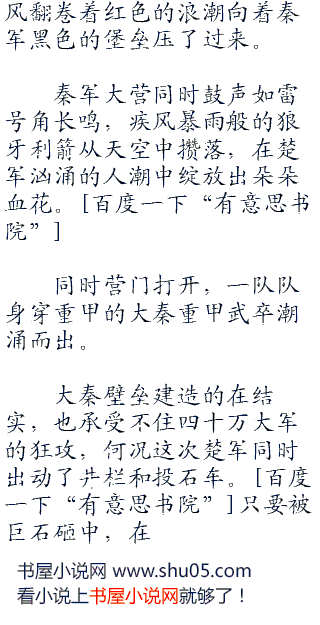 风翻卷着红色的浪潮向着秦
军黑色的堡垒压了过来。
秦军大营同时鼓声如雷
号角长鸣，疾风暴雨般的狼
牙利箭从天空中攒落，在楚
军汹涌的人潮中绽放出朵朵
血花。[百度一下“有意思书
院”]
同时营门打开，一队队
身穿重甲的大秦重甲武卒潮
涌而出。
大秦壁垒建造的在结
实，也承受不住四十万大军
的狂攻，何况这次楚军同时
出动了井栏和投石车。[百度
一下“有意思书院”]只要被
巨石砸中，在
书屋小说网 www.shu05.com
看小说上书屋小说网就够了！